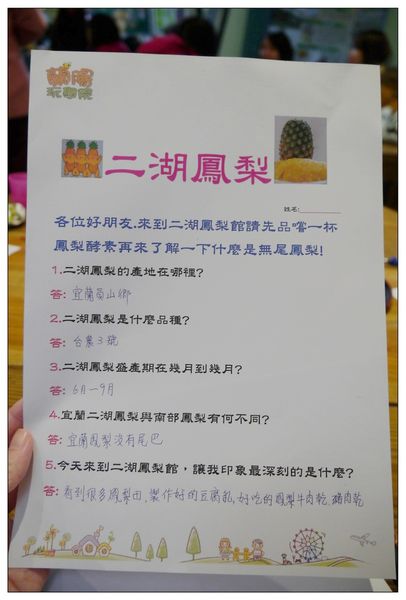 蘭陽
玩學院
二湖鳳梨
姓名:
各位好朋友.來到二湖鳳梨館請先品嚐一杯
鳳梨酵素再來了解一下什麼是無尾鳳梨!
1.二湖鳳梨的產地在哪裡?
答: 宜蘭員山鄉
2.二湖鳳梨是什麼品種?
答: 台農3號
3.二湖鳳梨盛產期在幾月到幾月?
答: 6月~9月
4.宜蘭二湖鳳梨與南部鳳梨有何不同?
答: 宜蘭鳳梨沒有尾巴
5.今天來到二湖鳳梨館，讓我印象最深刻的是什麼?
答: 看到很多鳳梨田,製作好的豆腐乳,好吃的鳳梨牛肉乾.豬肉乾